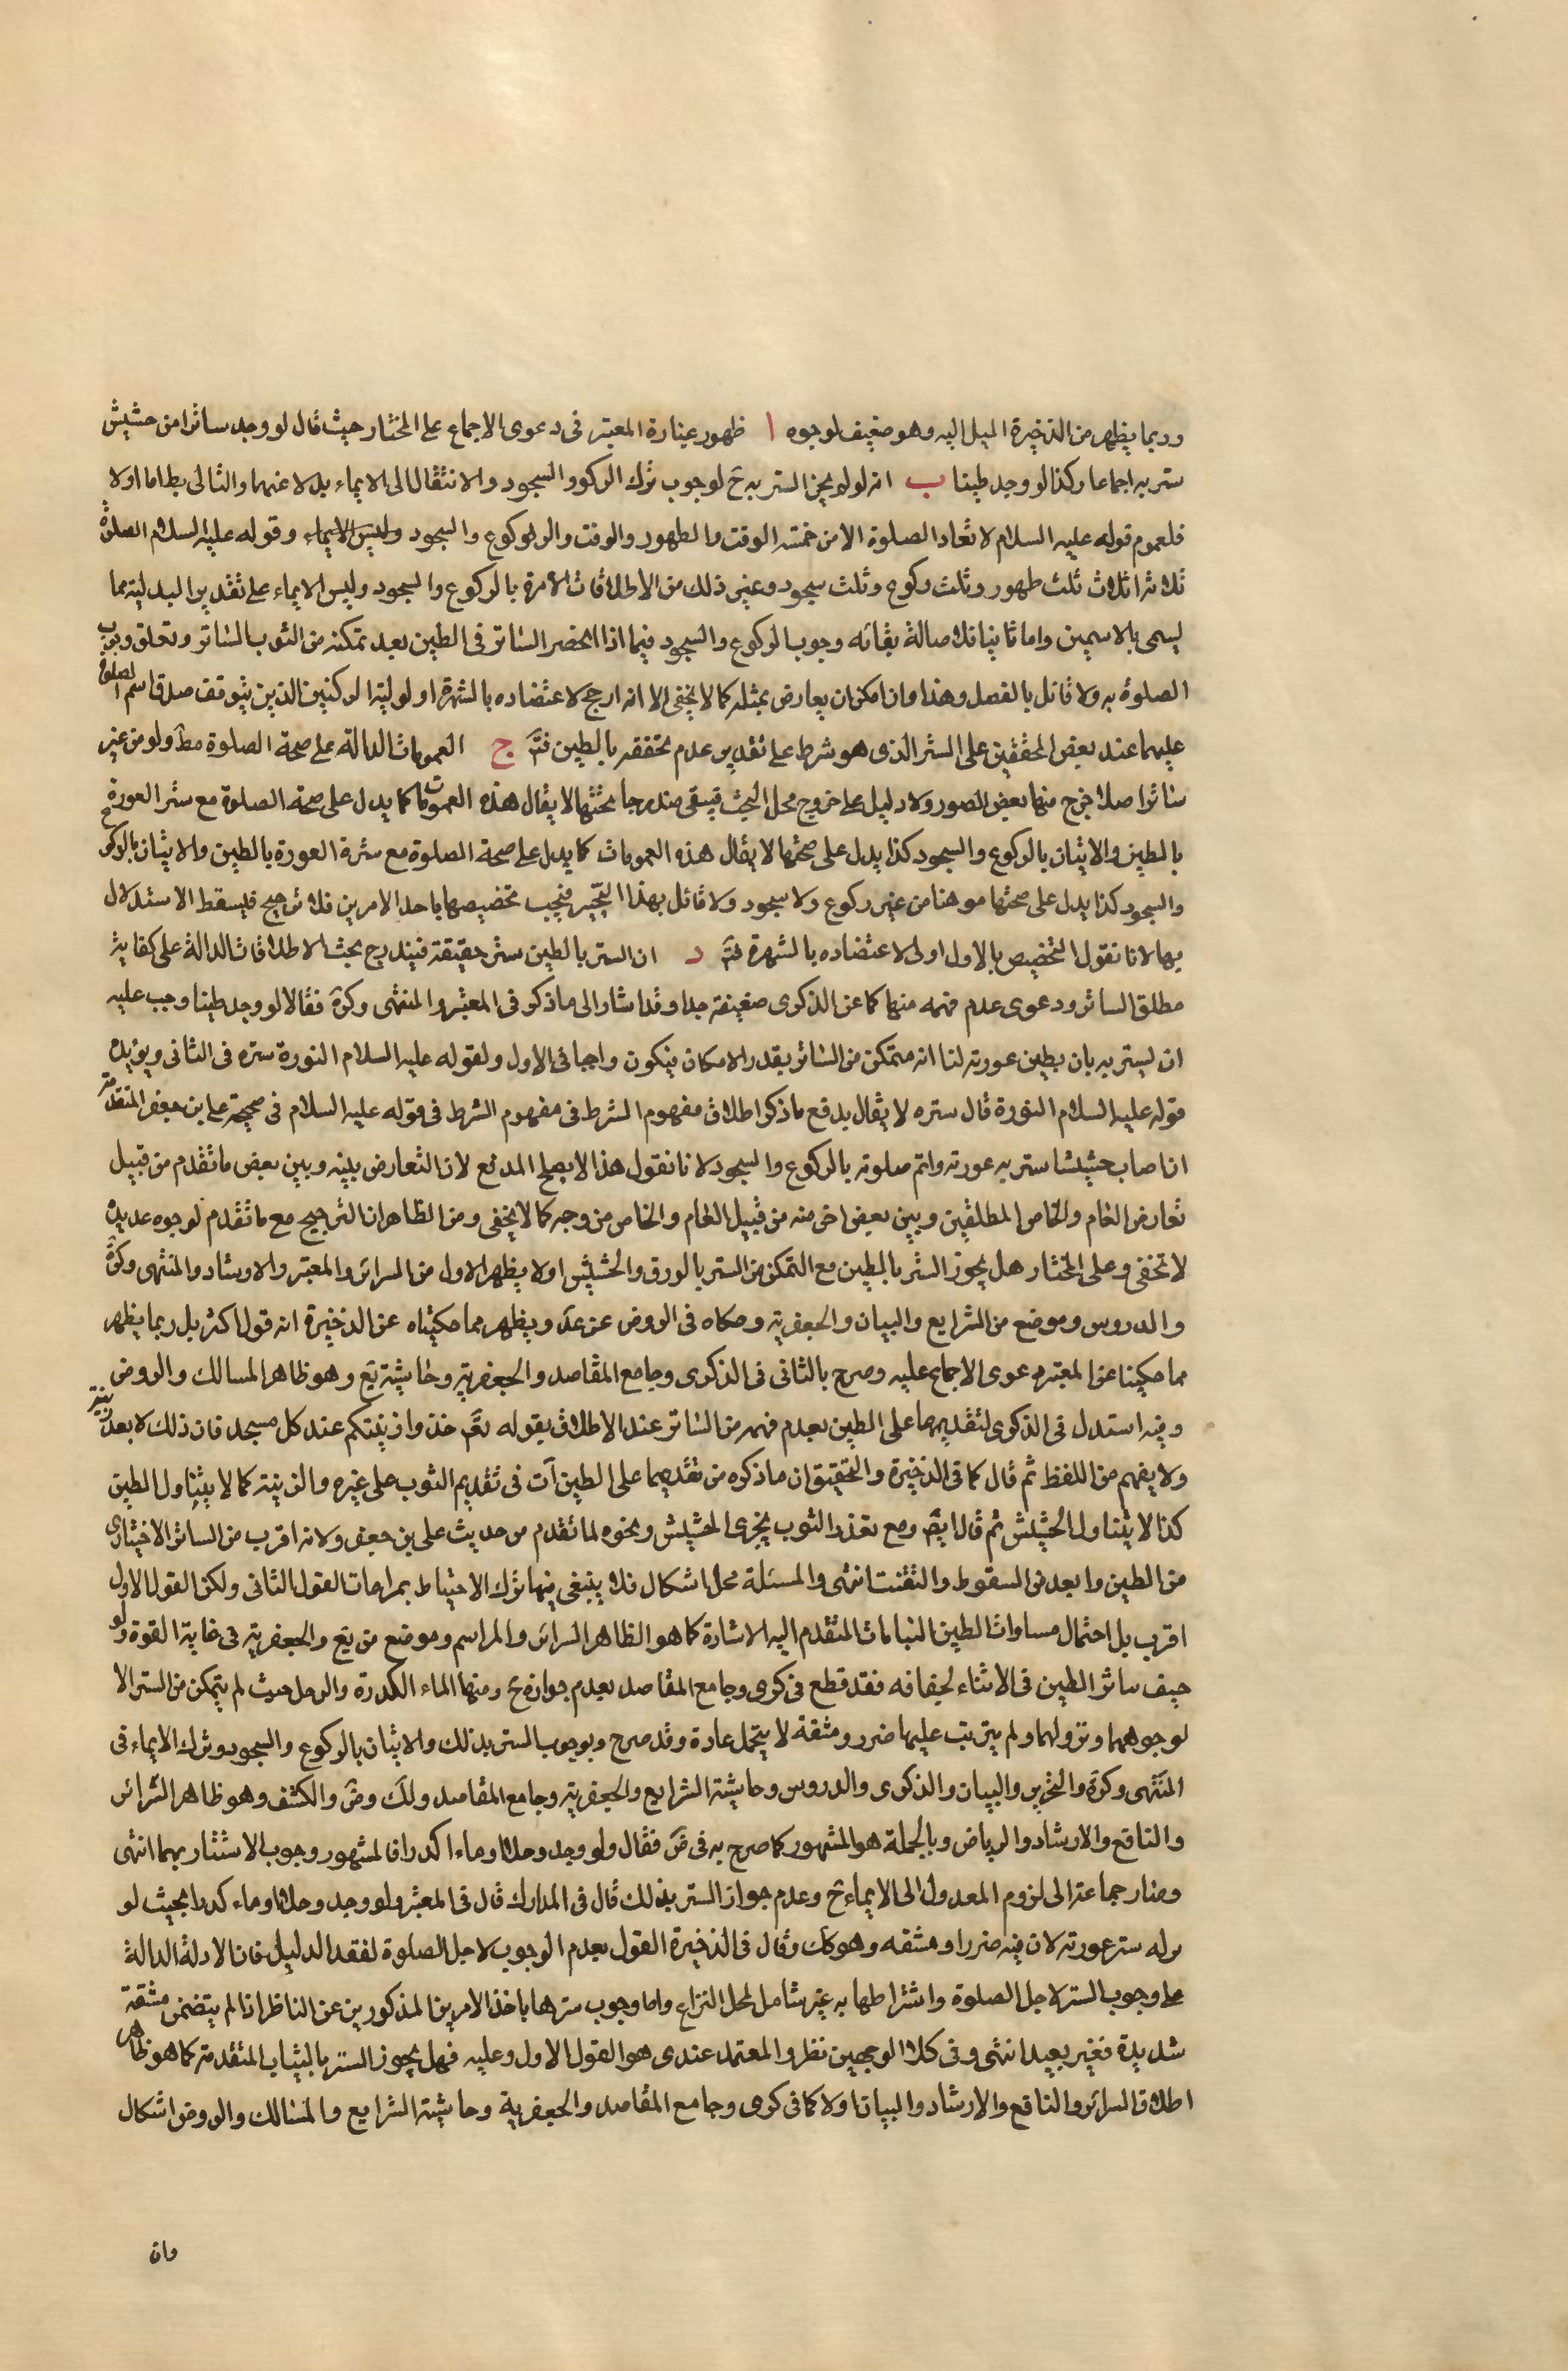 وربما يظهر من الذخيرة الميل اليه وهو ضعيف لوجوه ا ظهور عبارة المعتبر فى دعوى الاجماع على المختار حيث قال لو وجد ساترا من حشيش
ستر به اجماعا وكذا لو وجد طينا ب انه لو لم يجز الستر به ح لوجوب ترك الركوع والسجود والانتقال الى الايماء بدلا عنهما والتالى بط اما اولا
فلعموم قوله عليه السلام لا تعاد الصلوة الا من خمسة الوقت والطهور والوقت والركوع والسجود وليس الايماء وقوله عليه السلام الصلوة
ثلاثة اثلاث ثلث طهور وثلث ركوع وثلث سجود وغير ذلك من الاطلاقات الآمرة بالركوع والسجود وليس الايماء على تقدير البدلية مما
يسمى بالاسمين واما ثانيا فلاصالة بقائه وجوب الركوع والسجود فيما اذا انحضر الساتر فى الطين بعد تمكنه من الثوب الساتر وتعلق وجوب
الصلوة به ولا قائل بالفصل وهذا وان امكن ان يعارض بمثله كما لا يخفى الا انه ارجح لاعتضاده بالشهرة اولوية الركنين الذين يتوقف صدق اسم الصلوة
عليهما عند بعض المحققين على الستر الذى هو شرط على تقدير عدم تحققه بالطين فتم ج العمومات الدالة على صحة الصلوة مط ولو من غير
ساتر اصلا خرج منها بعض الصور ولا دليل على خروج محل البحث فيبقى مندرجا تحتها لا يقال هذه العمومات كما يدل على صحة الصلوة مع ستر العورة ح
بالطين والاتيان بالركوع والسجود كذا يدل على صحتها لا يقال هذه العمومات كما يدل على صحة الصلوة مع سترة العورة بالطين والاتيان بالركوع
والسجود كذا يدل على صحتها موهنا من غير ركوع ولا سجود ولا قائل بهذا التخيير فيجب تخصيصها باحد الامرين فلا ترجيح فيسقط الاستدلال
بها لانا نقول التخصيص بالاول اولى لاعتضاده بالشهرة فتم د ان الستر بالطين ستر حقيقة فيندرج تحت الاطلاقات الدالة على كفاية
مطلق الساتر ودعوى عدم فهمه منها كما عن الذكرى ضعيفة جدا وقد اشار الى ما ذكر فى المعتبر والمنتهى وكرة فقالا لو وجد طينا وجب عليه
ان يستتر به بان يطين عورته لنا انه متمكن من الساتر بقدر الامكان فيكون واجبا فى الاول ولقوله عليه السلام النورة ستره فى الثانى ويؤيده
قوله عليه السلام النورة قال ستره لا يقال يدفع ما ذكر اطلاق مفهوم الشرط فى مفهوم الشرط فى قوله عليه السلام فى صحيحة على بن جعفر المتقدمة
ان اصاب حشيشا ستر به عورته واتم صلوته بالركوع والسجود لانا نقول هذا لا يصلح المدفع لان التعارض بينه وبين بعض ما تقدم من قبيل
تعارض العام والخاص المطلقين وبين بعض اخر منه من قبيل العام والخاص من وجه كما لا يخفى ومن الظاهر ان الترجيح مع ما تقدم لوجوه عديدة
لا تخفى وعلى المختار هل يجوز الستر بالطين مع التمكن من الستر بالورق والحشيش اولا يظهر الاول من السرائر والمعتبر والارشاد والمنتهى وكرة
والدروس وموضع من الشرايع والبيان والجعفرية وحكاه فى الروض عن عد ويظهر مما حكيناه عن الذخيرة انه قول اكثر بل ربما يظهر
مما حكينا عن المعتبر دعوى الاجماع عليه وصرح بالثانى فى الذكرى وجامع المقاصد والجعفرية وحاشية يع وهو ظاهر المسالك والروض
وفيه استدل فى الذكرى لتقديمهما على الطين بعدم فهمه من الساتر عند الاطلاق بقوله تعم خذوا زينتكم عند كل مسجد فان ذلك لا يعد زينة
ولا يفهم من اللفظ ثم قال كما فى الذخيرة والتحقيق ان ما ذكره من تقديمهما على الطين آت فى تقديم الثوب على غيره والزينة كما لا يتناول الطين
كذا لا يتناول الحشيش ثم قال ايضم ومع تعذر الثوب يجزى الحشيش ونحوه لما تقدم من حديث على بن جعفر ولانه اقرب من الساتر الاختيارى
من الطين وابعد من السقوط والتفتت انتهى والمسئلة محل اشكال فلا ينبغى فيها ترك الاحتياط بمراعات القول الثانى ولكن القول الاول
اقرب بل احتمال مساوات الطين النباتات المتقدم اليه الاشارة كما هو الظاهر السرائر والمراسم وموضع من يع والجعفرية فى غاية القوة ولو
جف ساتر الطين فى الاثناء لجفافه فقد قطع فى كرى وجامع المقاصد بعدم جوازه ح ومنها الماء الكدرة والوحل حيث لم يتمكن من الستر الا
لوجوههما ونزولهما ولم يترتب عليها ضرر ومشقة لا يتحمل عادة وقد صرح وبوجوب الستر بذلك والاتيان بالركوع والسجود وترك الايماء فى
المنتهى وكرة والتحرير والبيان والذكرى والدروس وحاشية الشرايع والجعفرية وجامع المقاصد ولك وض والكشف وهو ظاهر السرائر
والنافع والارشاد والرياض وبالجملة هو المشهور كما صرح به فى ض فقال ولو وجد وحلا او ماء اكدرا فالمشهور وجوب الاستتار بهما انتهى
وصار جماعة الى لزوم العدول الى الايماء ح وعدم جواز الستر بذلك قال فى المدارك قال فى المعتبر ولو وجد وحلا او ماء كدرا بحيث لو
نزله ستر عورته لان فيه ضررا ومشقه وهو كك وقال فى الذخيرة القول بعدم الوجوب لاجل الصلوة لفقد الدليل فان الادلة الدالة
على وجوب الستر لاجل الصلوة واشتراطها به غير شامل لمحل النزاع واما وجوب سترها باخذ الامرين المذكورين عن الناظر اذا لم يتضمن مشقة
شديدة فغير بعيد انتهى وفى كلا الوجهين نظر والمعتمد عندى هو القول الاول وعليه فهل يجوز الستر بالثياب المتقدمة كما هو ظاهر
اطلاق السرائر والنافع والارشاد والبيان اولا كما فى كرى وجامع المقاصد والجعفرية وحاشية الشرايع والمسالك والروض اشكال
وان